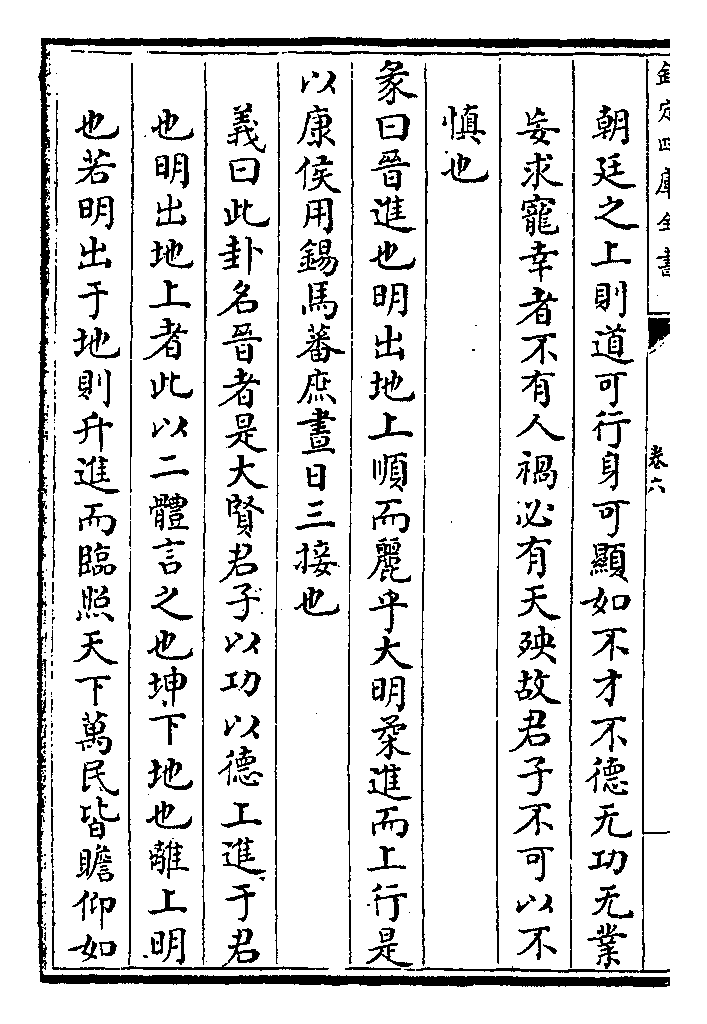 欽定四庫全書
卷六
朝廷之上則道可行身可顯如不才不德无功无業
妄求寵幸者不有人禍必有天殃故君子不可以不
慎也
彖曰晉進也明出地上順而麗乎大明柔進而上行是
以康侯用錫馬蕃庶晝日三接也
義曰此卦名晉者是大賢君子以功以德上進于君
也明出地上者此以二體言之也坤下地也離上明
也若明出于地則升進而臨照天下萬民皆瞻仰如